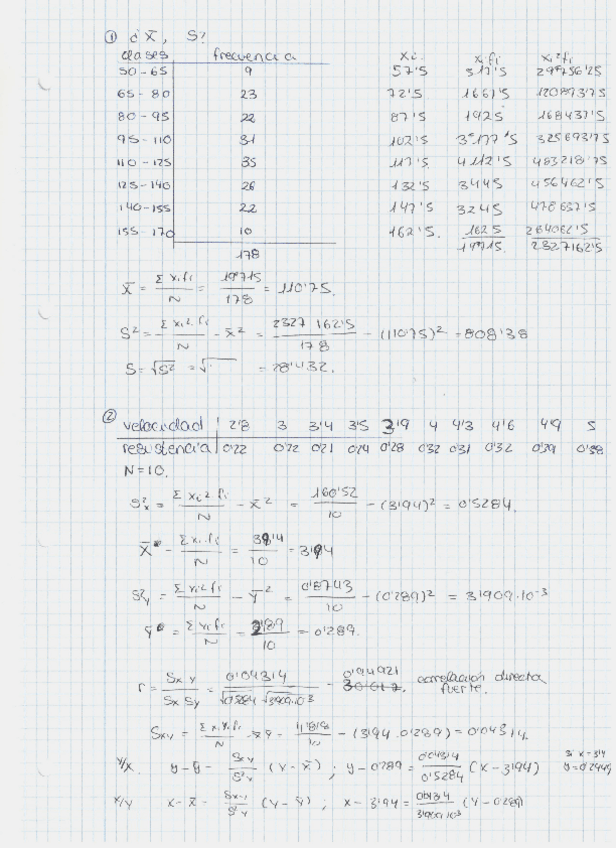 ① ¿ X̄, S?
clases frecuencia xi xifi xi²fi
50-65 9 57'5 517'5 29756'25
65-80 23 72'5 1667'5
80-95 22 87'5 1925 168437'5
95-110 31 102'5 3177'5 325693'75
110-125 35 117'5 4112'5 483218'75
125-140 26 132'5 3445 456462'5
140-155 22 147'5 3245 478637'5
155-170 10 162'5 1625 264062'5
178 19715 2327162'5
X̄ = Σxifi/N = 19715/178 = 110'75.
S² = Σxi²fi/N - x̄² = 2327162'5/178 - (110'75)² = 808'38
S = √S² = √ = 28'432.
② velocidad 2'8 3 3'4 3'5 3'9 4 4'3 4'6 4'9 5
resistencia 0'22 0'22 0'21 0'24 0'28 0'32 0'31 0'32 0'39 0'38
N=10.
S²x = Σxi²fi/N - x̄² = 160'52/10 - (3'94)² = 0'5284.
X̄ = Σxifi/N = 39'4/10 = 3'94
S²y = Σyi²fi/N - ȳ² = 0'8743/10 - (0'289)² = 3'909·10⁻³
ȳ = Σyifi/N = 2'89/10 = 0'289.
r = Sxy/SxSy = 0'04314/√0'5284 √3'909·10⁻³ = 0'94921 correlación directa fuerte.
Sxy = Σxiyifi/N - x̄ȳ = 11'818/10 - (3'94·0'289) = 0'04314
y/x. y-ȳ = Sxy/S² (x-x̄) ; y-0'289 = 0'04314/0'5284 (x-3'94)
x/y x-x̄ = Sxy/S²y (y-ȳ) ; x-3'94 = 0'04314/3'909·10⁻³ (y-0'289)